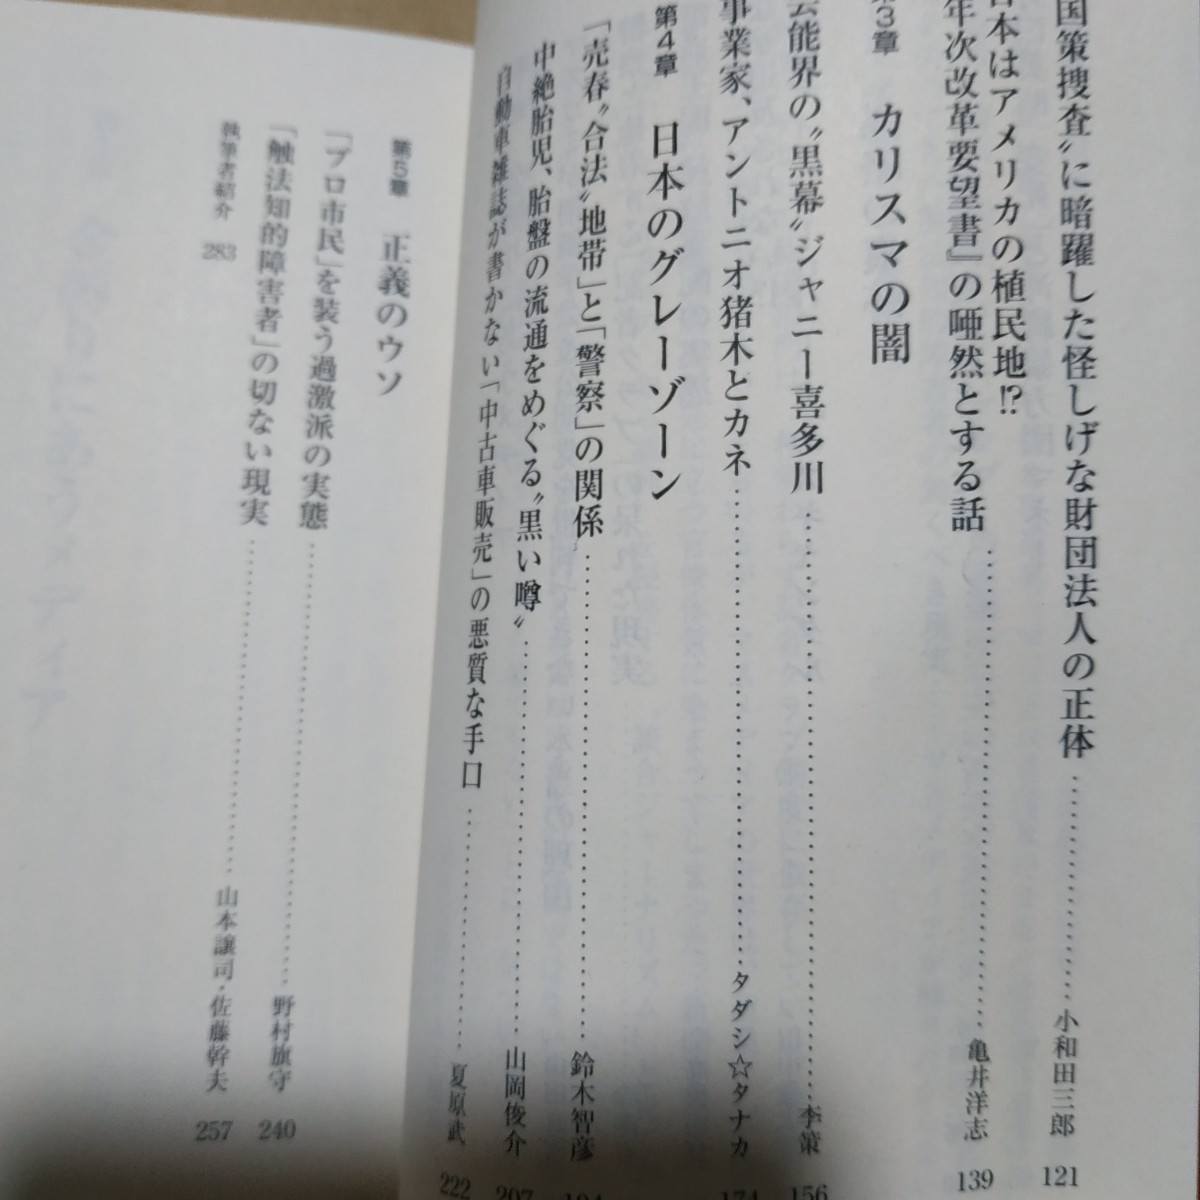 国策捜査〟に暗躍した怪しげな財団法人の正体……………小和田三郎 121
日本はアメリカの植民地!?
年次改革要望書』の唖然とする話……………亀井洋志 139
第3章 カリスマの闇
芸能界の〝黒幕〟ジャニー喜多川……………李策 156
事業家、アントニオ猪木とカネ……………タダシ☆タナカ 174
第4章 日本のグレーゾーン
「売春〝合法〟地帯」と「警察」の関係……………鈴木智彦
中絶胎児、胎盤の流通をめぐる〝黒い噂〟……………山岡俊介 207
自動車雑誌が書かない「中古車販売」の悪質な手口……………夏原武 222
第5章 正義のウソ
「プロ市民」を装う過激派の実態……………野村旗守 240
「触法知的障害者」の切ない現実……………山本譲司・佐藤幹夫 257
執筆者紹介 283